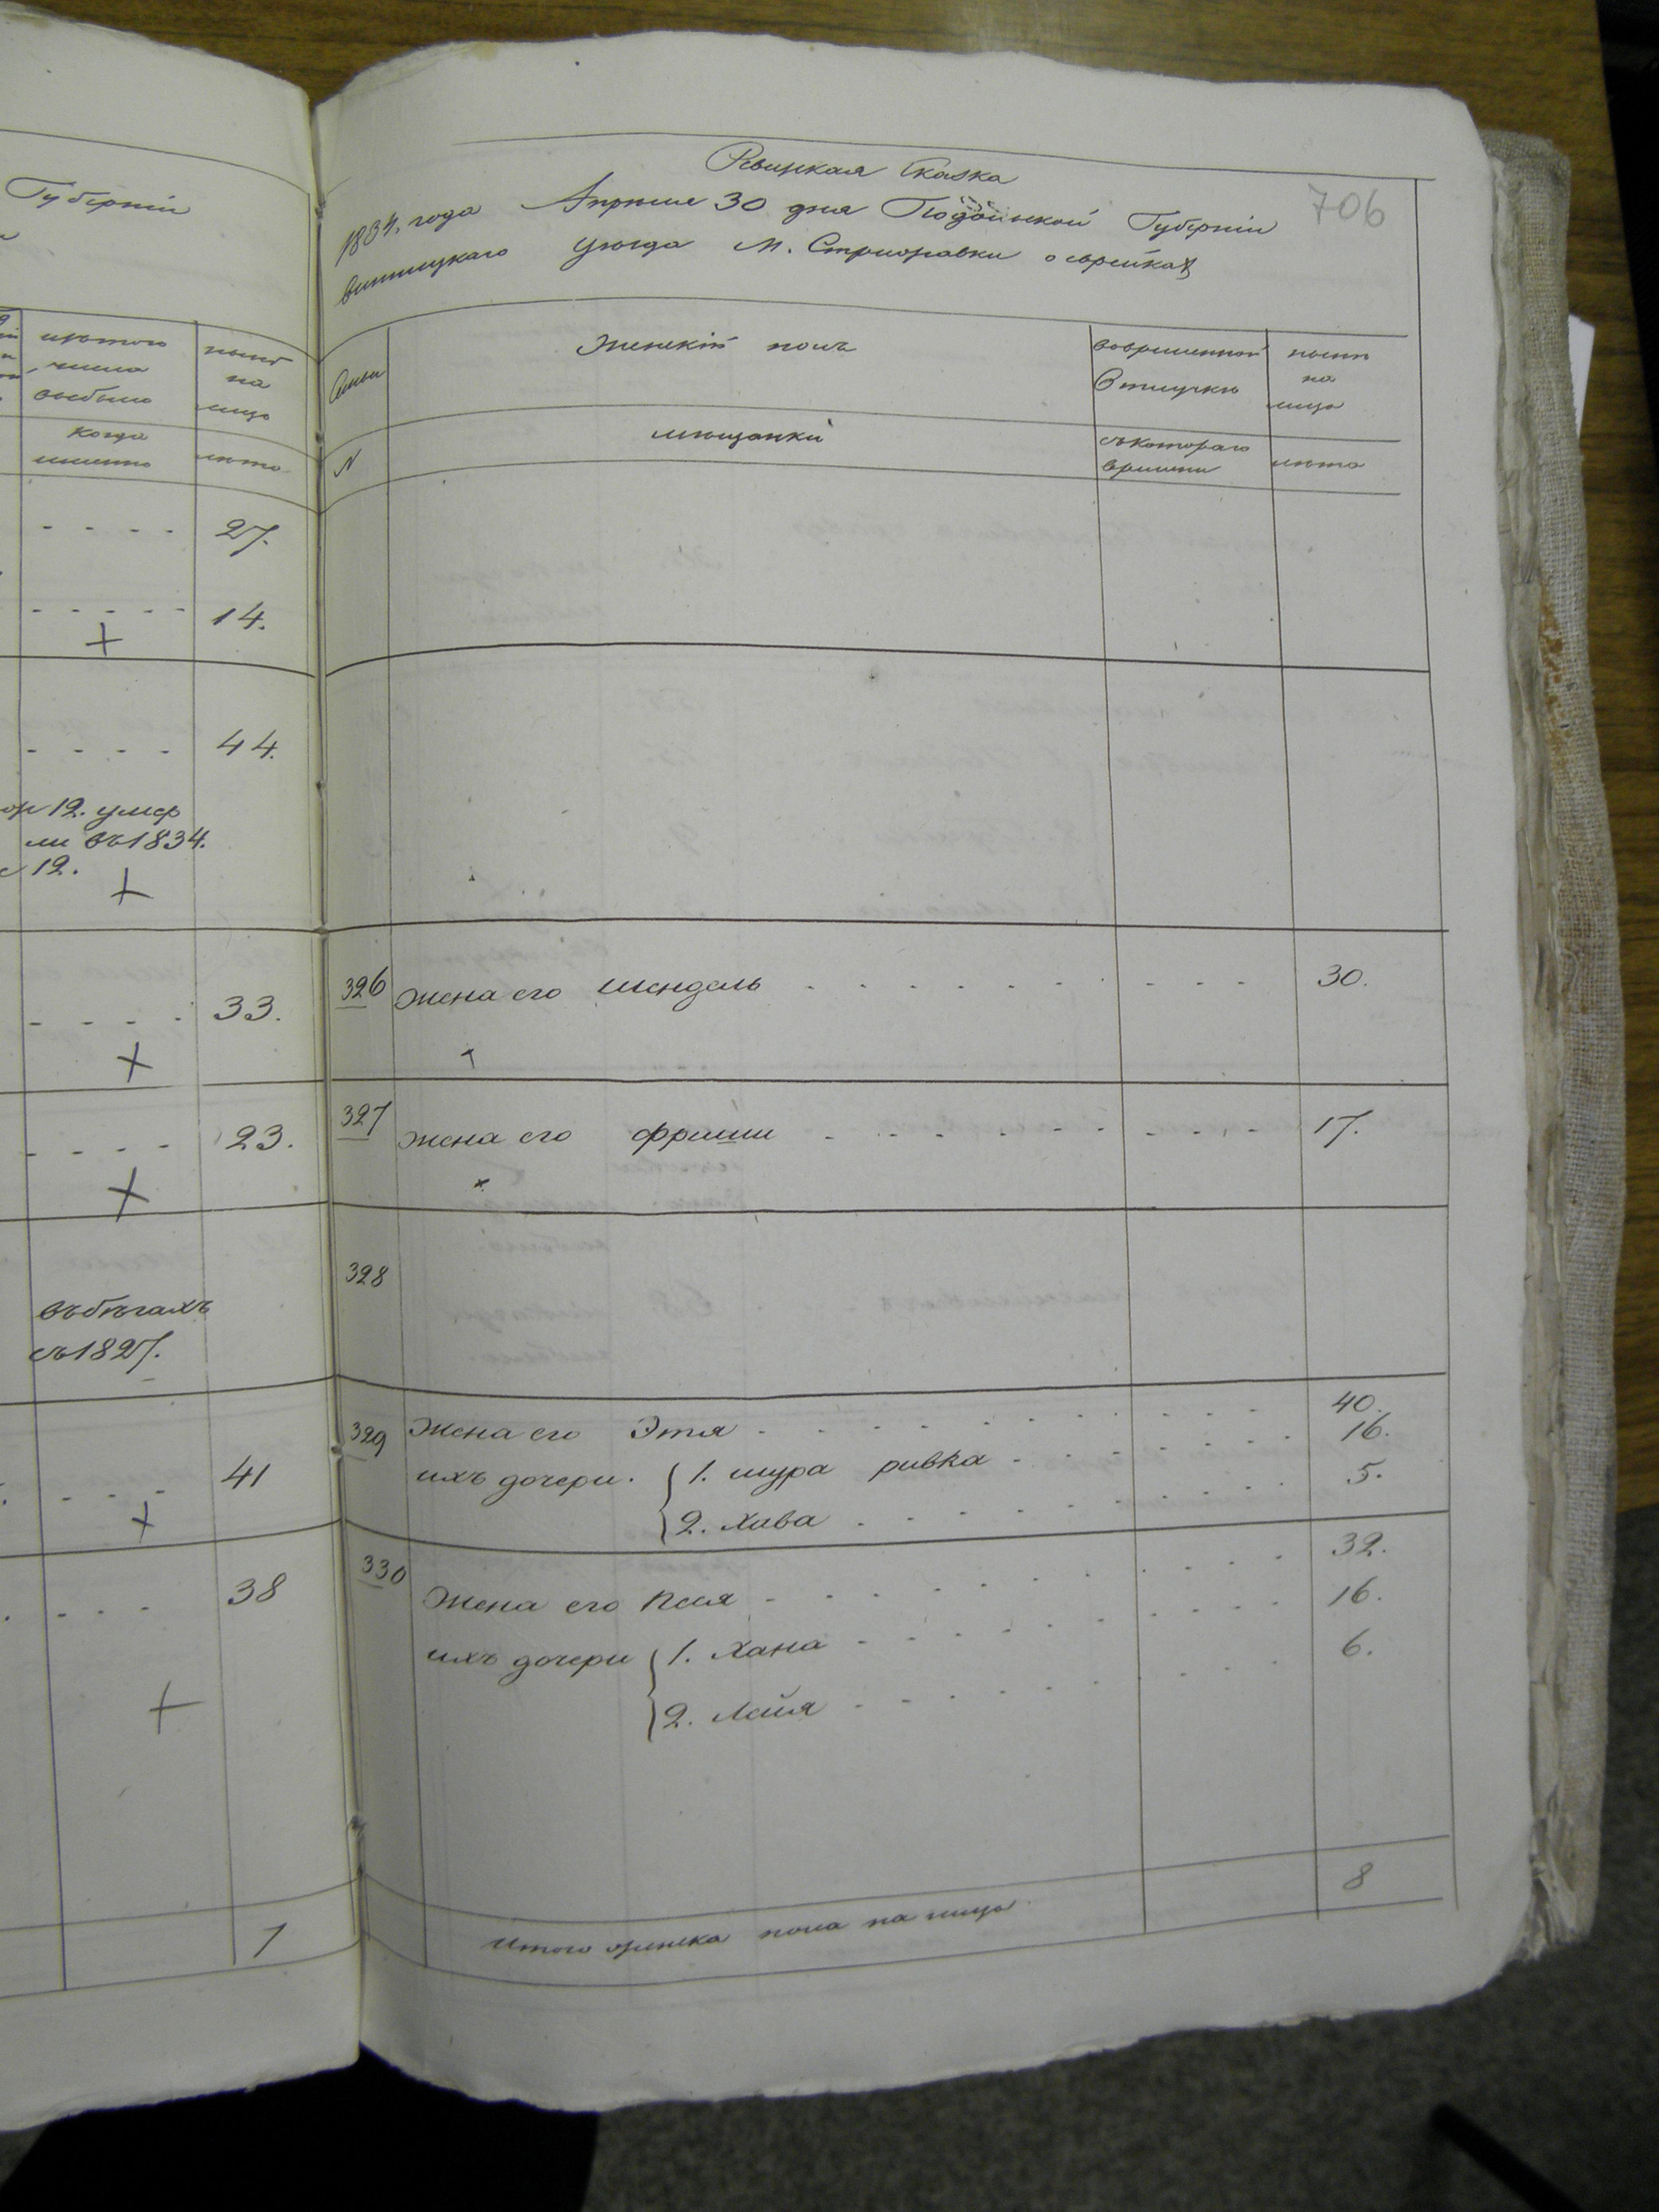 Губернiи
изъ того
числа
выбыло
ныне
на
лицо
когда
имянно
лета
27.
14.
44.
12. умер
ли въ 1834.
12.
33.
23.
въ бѣгахъ
съ 1827.
41
38
7
706
Ревизкая Сказка
1834. года Апреля 30 дня Подольской Губернiи
Винницкаго уезда М. Стрижавки о еврейкахъ
Семьи
Женскiй полъ
во временной
Отлучке
ныне
на
лицо
N
мещанки
съ котораго
времени
лета
326 Жена его Шендель 30.
327 жена его Фрима 17.
328
329 Жена его Этя 40.
ихъ дочери. 1. шура ривка 16.
2. Хава 5.
330 Жена его Песя 32.
ихъ дочери 1. Хана 16.
2. Лейя 6.
Итого женска пола на лицо 8